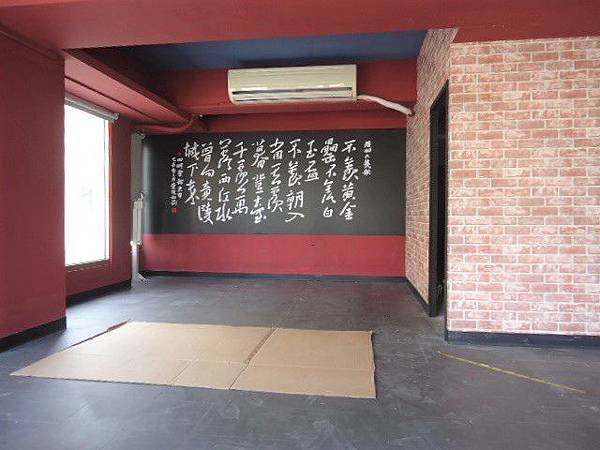 陸羽六羨歌
不羨黃金
罍不羨白
玉盃
不羨朝入
省不羨
暮登臺
千羨萬
羨西江水
曾向竟陵
城下來